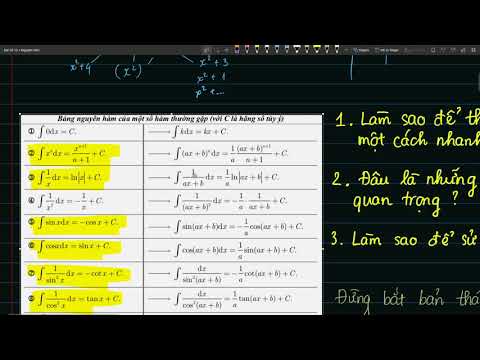 x²+4
(x²)
x²+3
x²+1
x²+...
Bảng nguyên hàm của một số hàm thường gặp (với C là hằng số tùy ý)
① ∫0dx = C. ⟶ ∫kdx = kx + C.
② ∫xⁿdx = xⁿ⁺¹/(n+1) + C. ⟶ ∫(ax + b)ⁿdx = 1/a (ax + b)ⁿ⁺¹/(n+1) + C.
③ ∫1/x dx = ln|x| + C. ⟶ ∫1/(ax + b) dx = 1/a ln|ax + b| + C.
④ ∫1/x² dx = -1/x + C. ⟶ ∫1/(ax + b)² dx = -1/a · 1/(ax + b) + C.
⑤ ∫sin xdx = -cos x + C. ⟶ ∫sin(ax + b)dx = -1/a cos(ax + b) + C.
⑥ ∫cos xdx = sin x + C. ⟶ ∫cos(ax + b)dx = 1/a sin(ax + b) + C.
⑦ ∫1/sin²x dx = -cot x + C. ⟶ ∫dx/sin²(ax + b) = -1/a cot(ax + b) + C.
⑧ ∫1/cos²x dx = tan x + C. ⟶ ∫dx/cos²(ax + b) = 1/a tan(ax + b) + C.
1. Làm sao để
một cách nhanh
2. Đâu là những
quan trọng ?
3. Làm sao để sử
Đừng bắt bản thâ